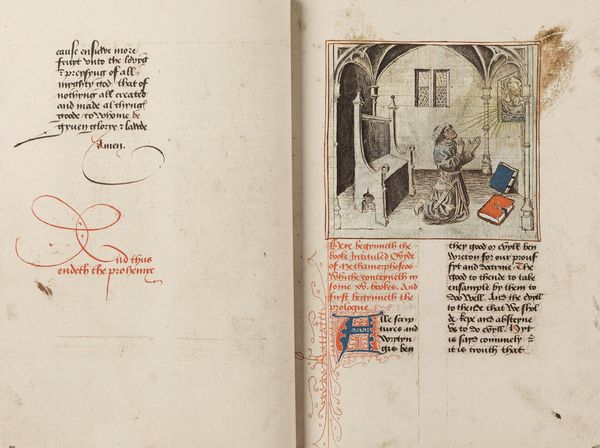 cause ensiewe more
fruyt vnto the lovyng
& preysyng of all
myghty god that of
nothyng all created
and made al thyngs
goode / to whome be
gyuen glorye & lawde
Amen.
And thus
endeth the prohemye
Here begynneth the
booke Intituled Ovyde
of Methamorphoseos
Whiche conteyneth in
some xv. bookes. And
first begynneth the
prologue.
Alle scrip
tures and
wrytyn
gis ben
they good or evyll ben
wreton for our prouf
fyt and doctrine The
good to thende to take
ensample by them to
doo well. And the evyll
to thende that we shuld
kepe and absteyne
vs to do evyll. Hyt
is sayd comunely &
it is trouth that